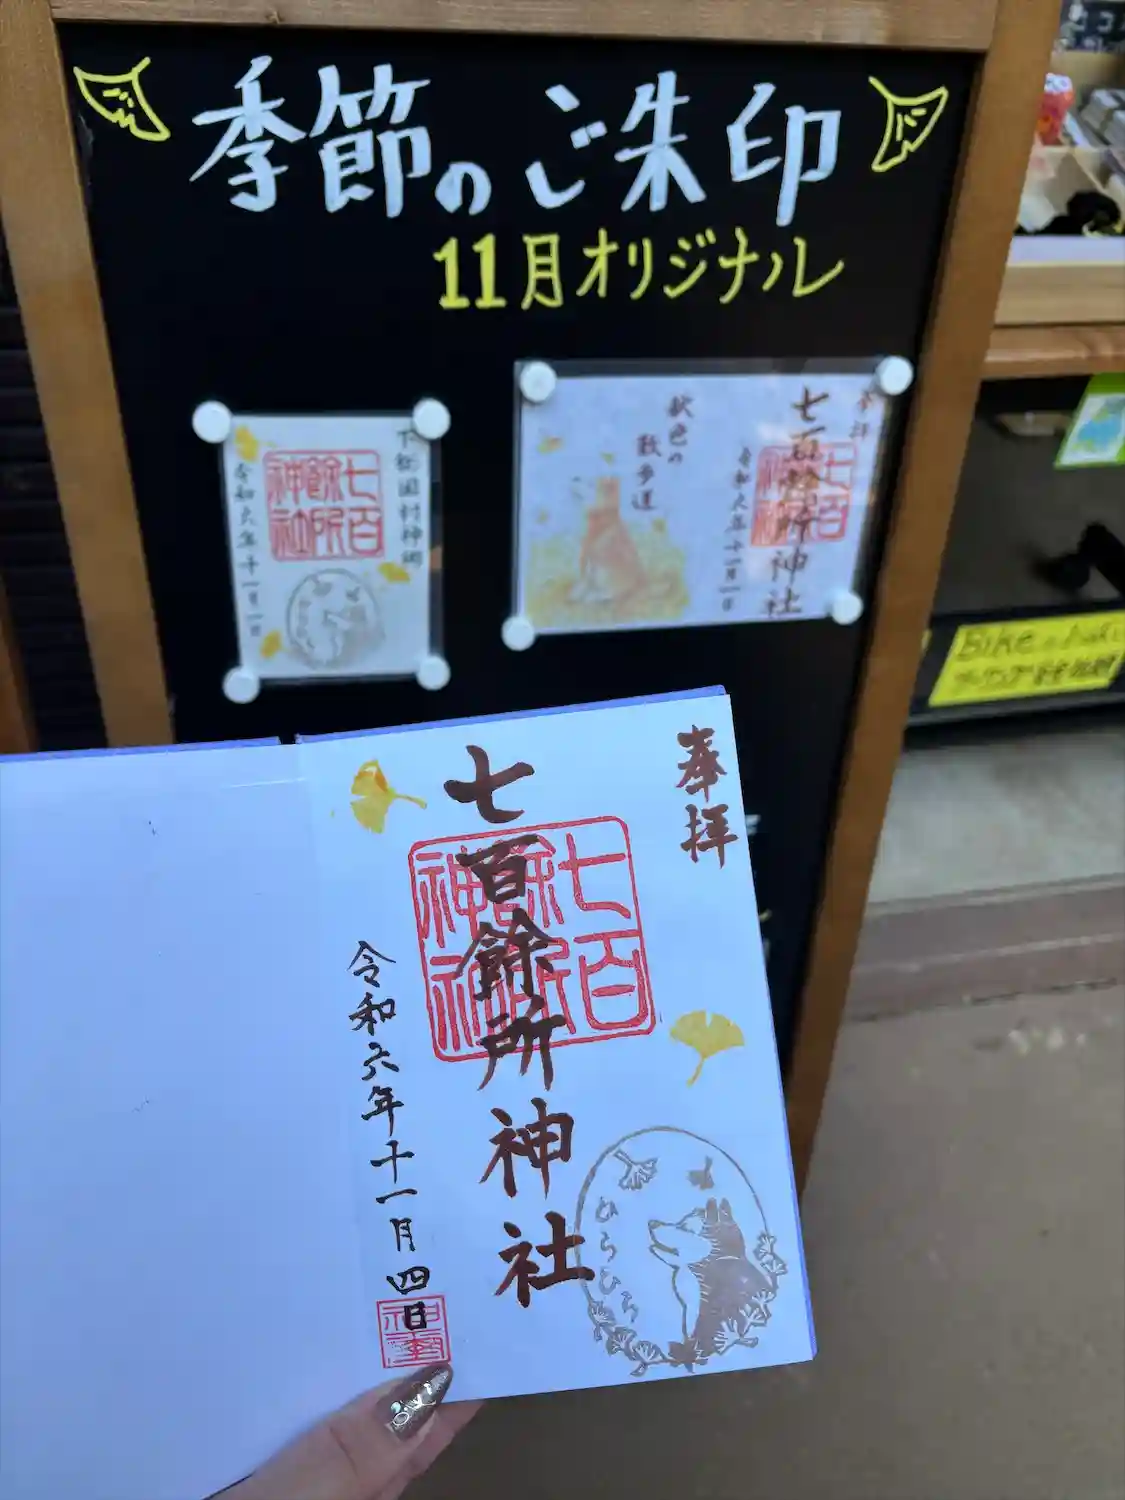 季節のご朱印
11月オリジナル
下総国村神郷
七百餘所神社
令和六年十一月一日
奉拝
七百餘所神社
七百餘所神社
令和六年十一月一日
秋色の
散歩道
奉拝
七百餘所神社
七百餘所神社
令和六年十一月四日
ひらひら
Bike